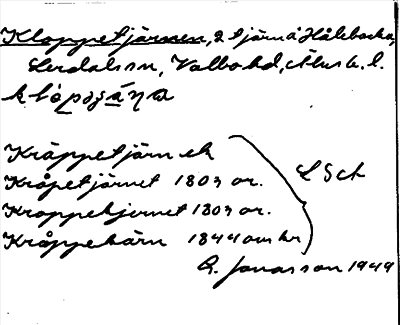 Kloppetjärnen, 2 tjärn å Hålebacka,
Lerdals sn, Valbo hd, Älvsb. l.
Kräppetjärn ek
Kråpetjärnet 1803 or.
Kroppekjernet 1803 or.
Kråppekärn 1844 om kr
LSch
G. Jonasson 1949